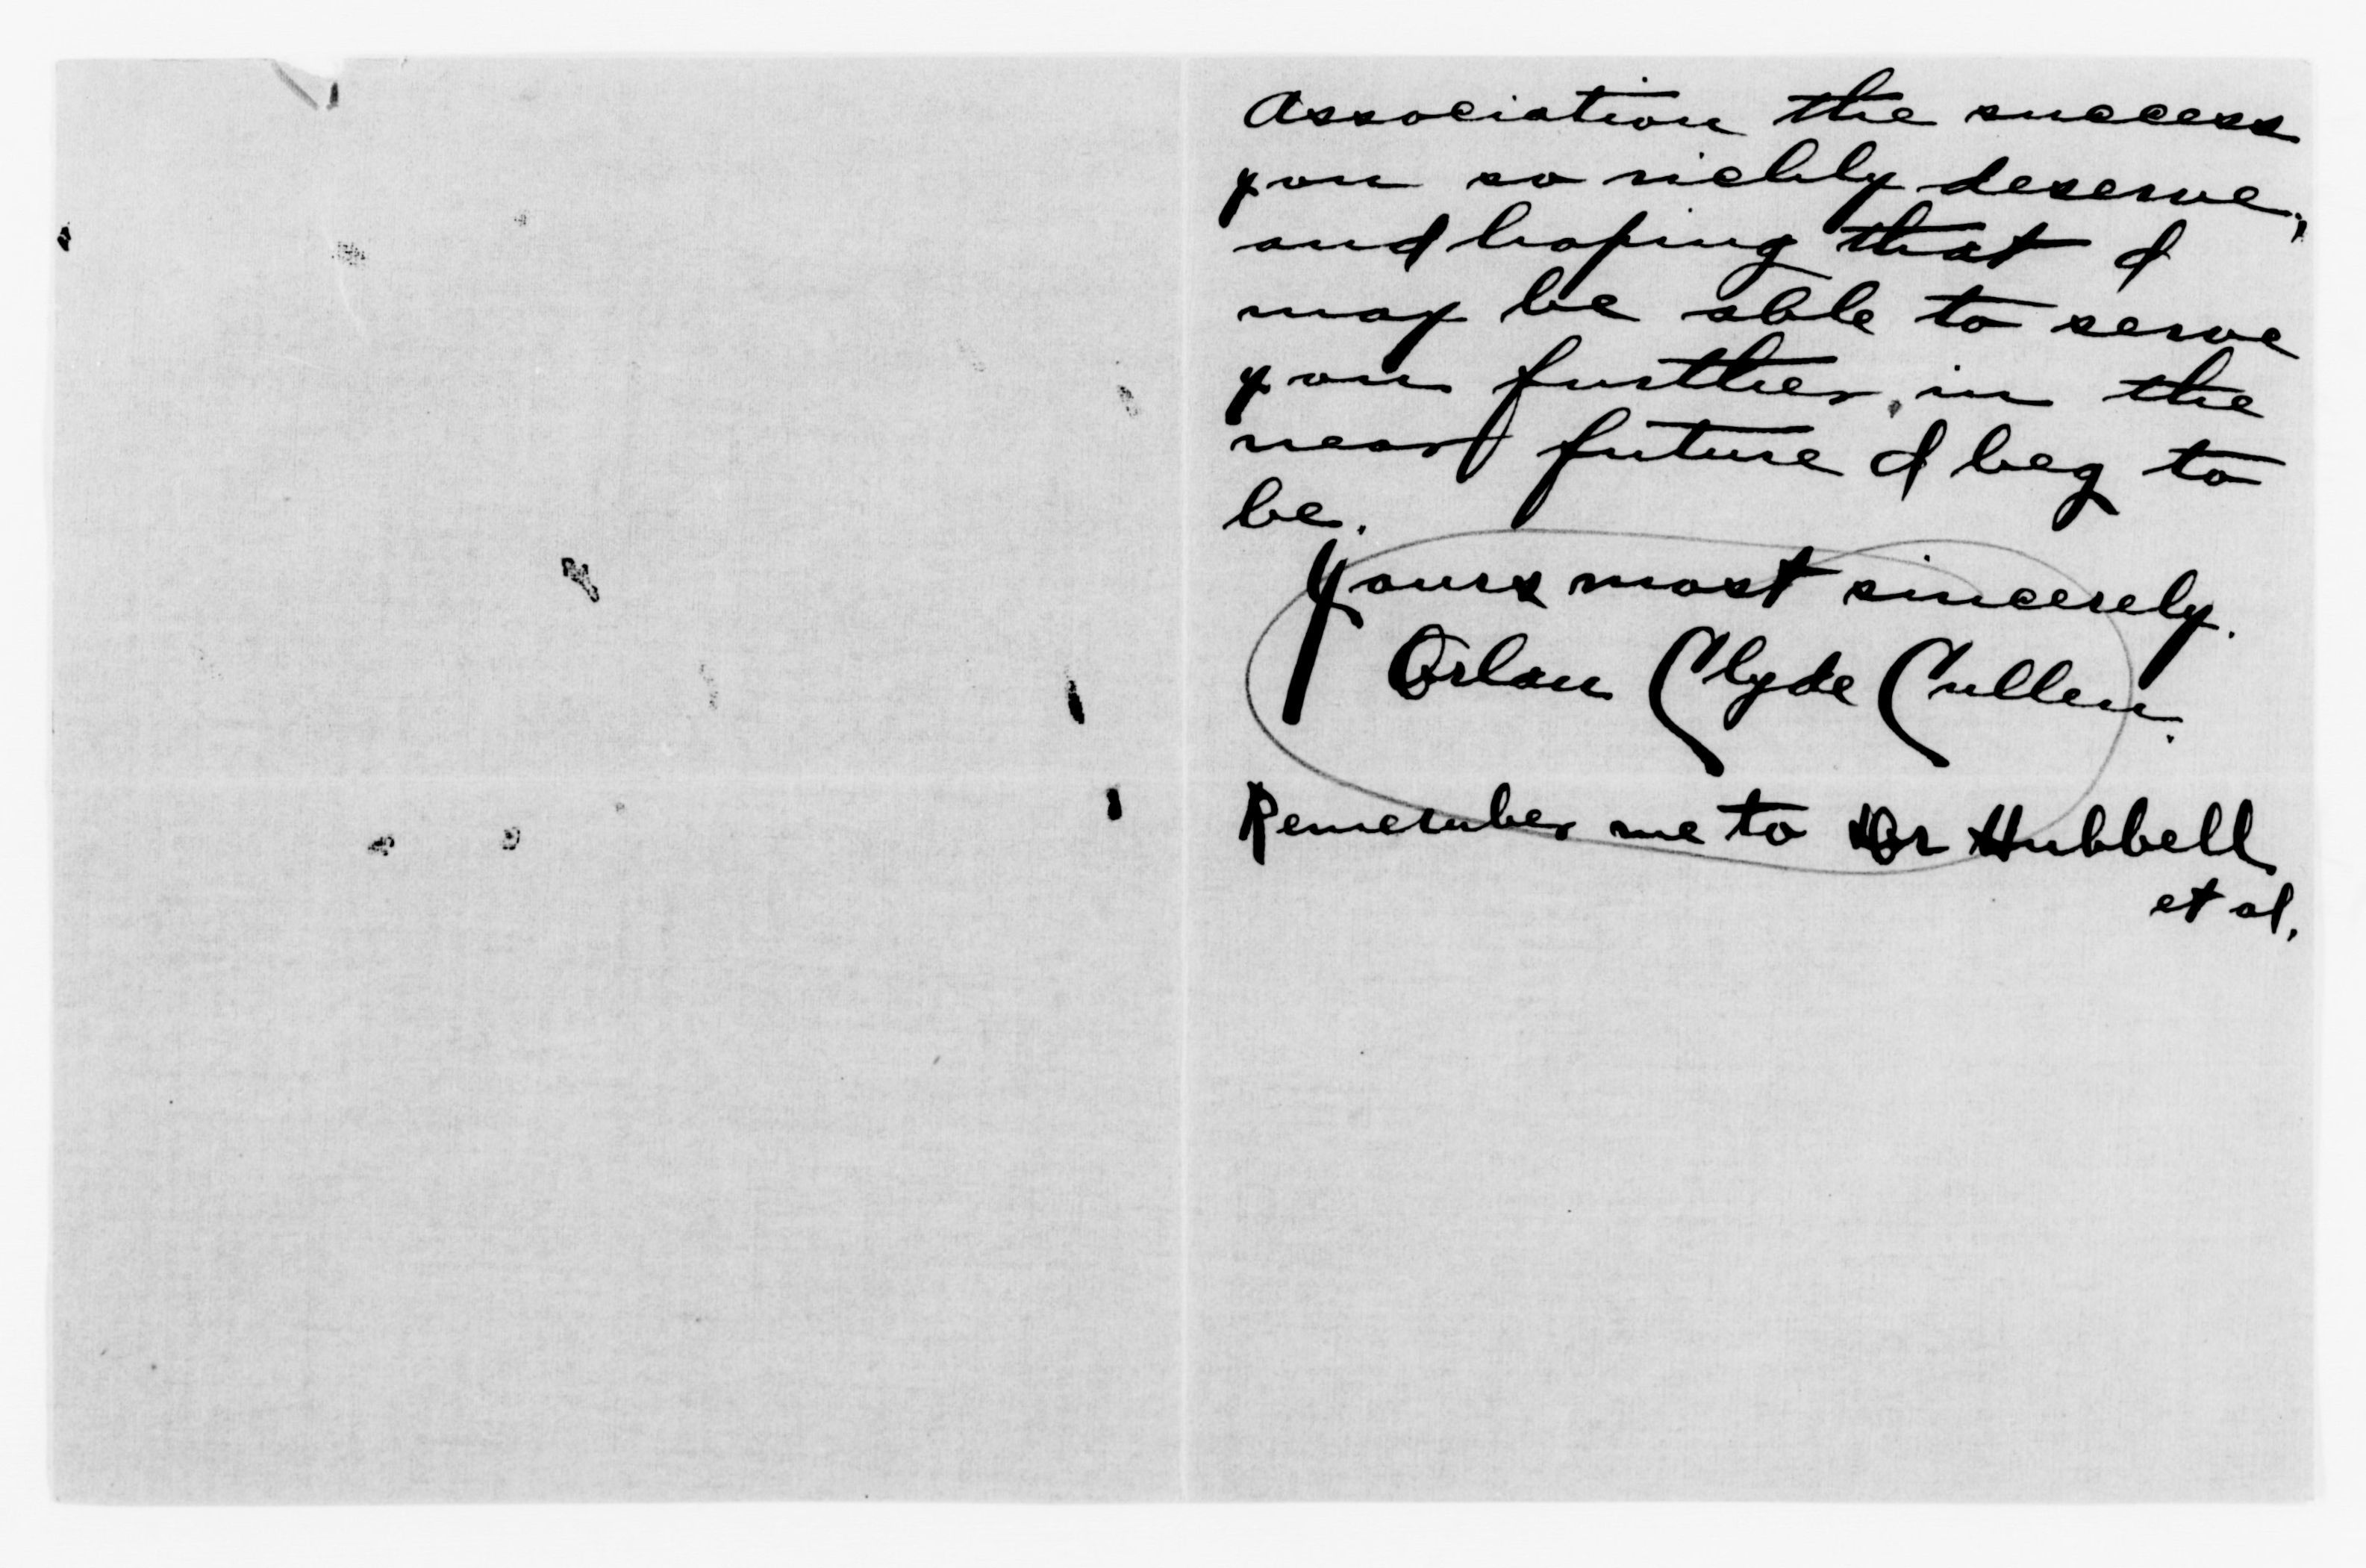 Association the success
you so richly deserve,
and hoping that I
may be able to serve
you further, in the
near future I beg to
be.
Yours most sincerely.
Orlan Clyde Cullen.
Remember me to Dr Hubbell
et al.